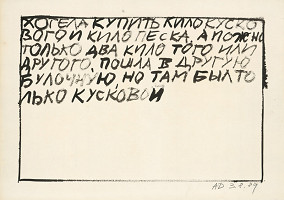 ХОТЕЛА КУПИТЬ КИЛО КУСКО
ВОГО И КИЛО ПЕСКА, А МОЖНО
ТОЛЬКО ДВА КИЛО ТОГО ИЛИ
ДРУГОГО, ПОШЛА В ДРУГУЮ
БУЛОЧНУЮ, НО ТАМ БЫЛ ТО
ЛЬКО КУСКОВОЙ